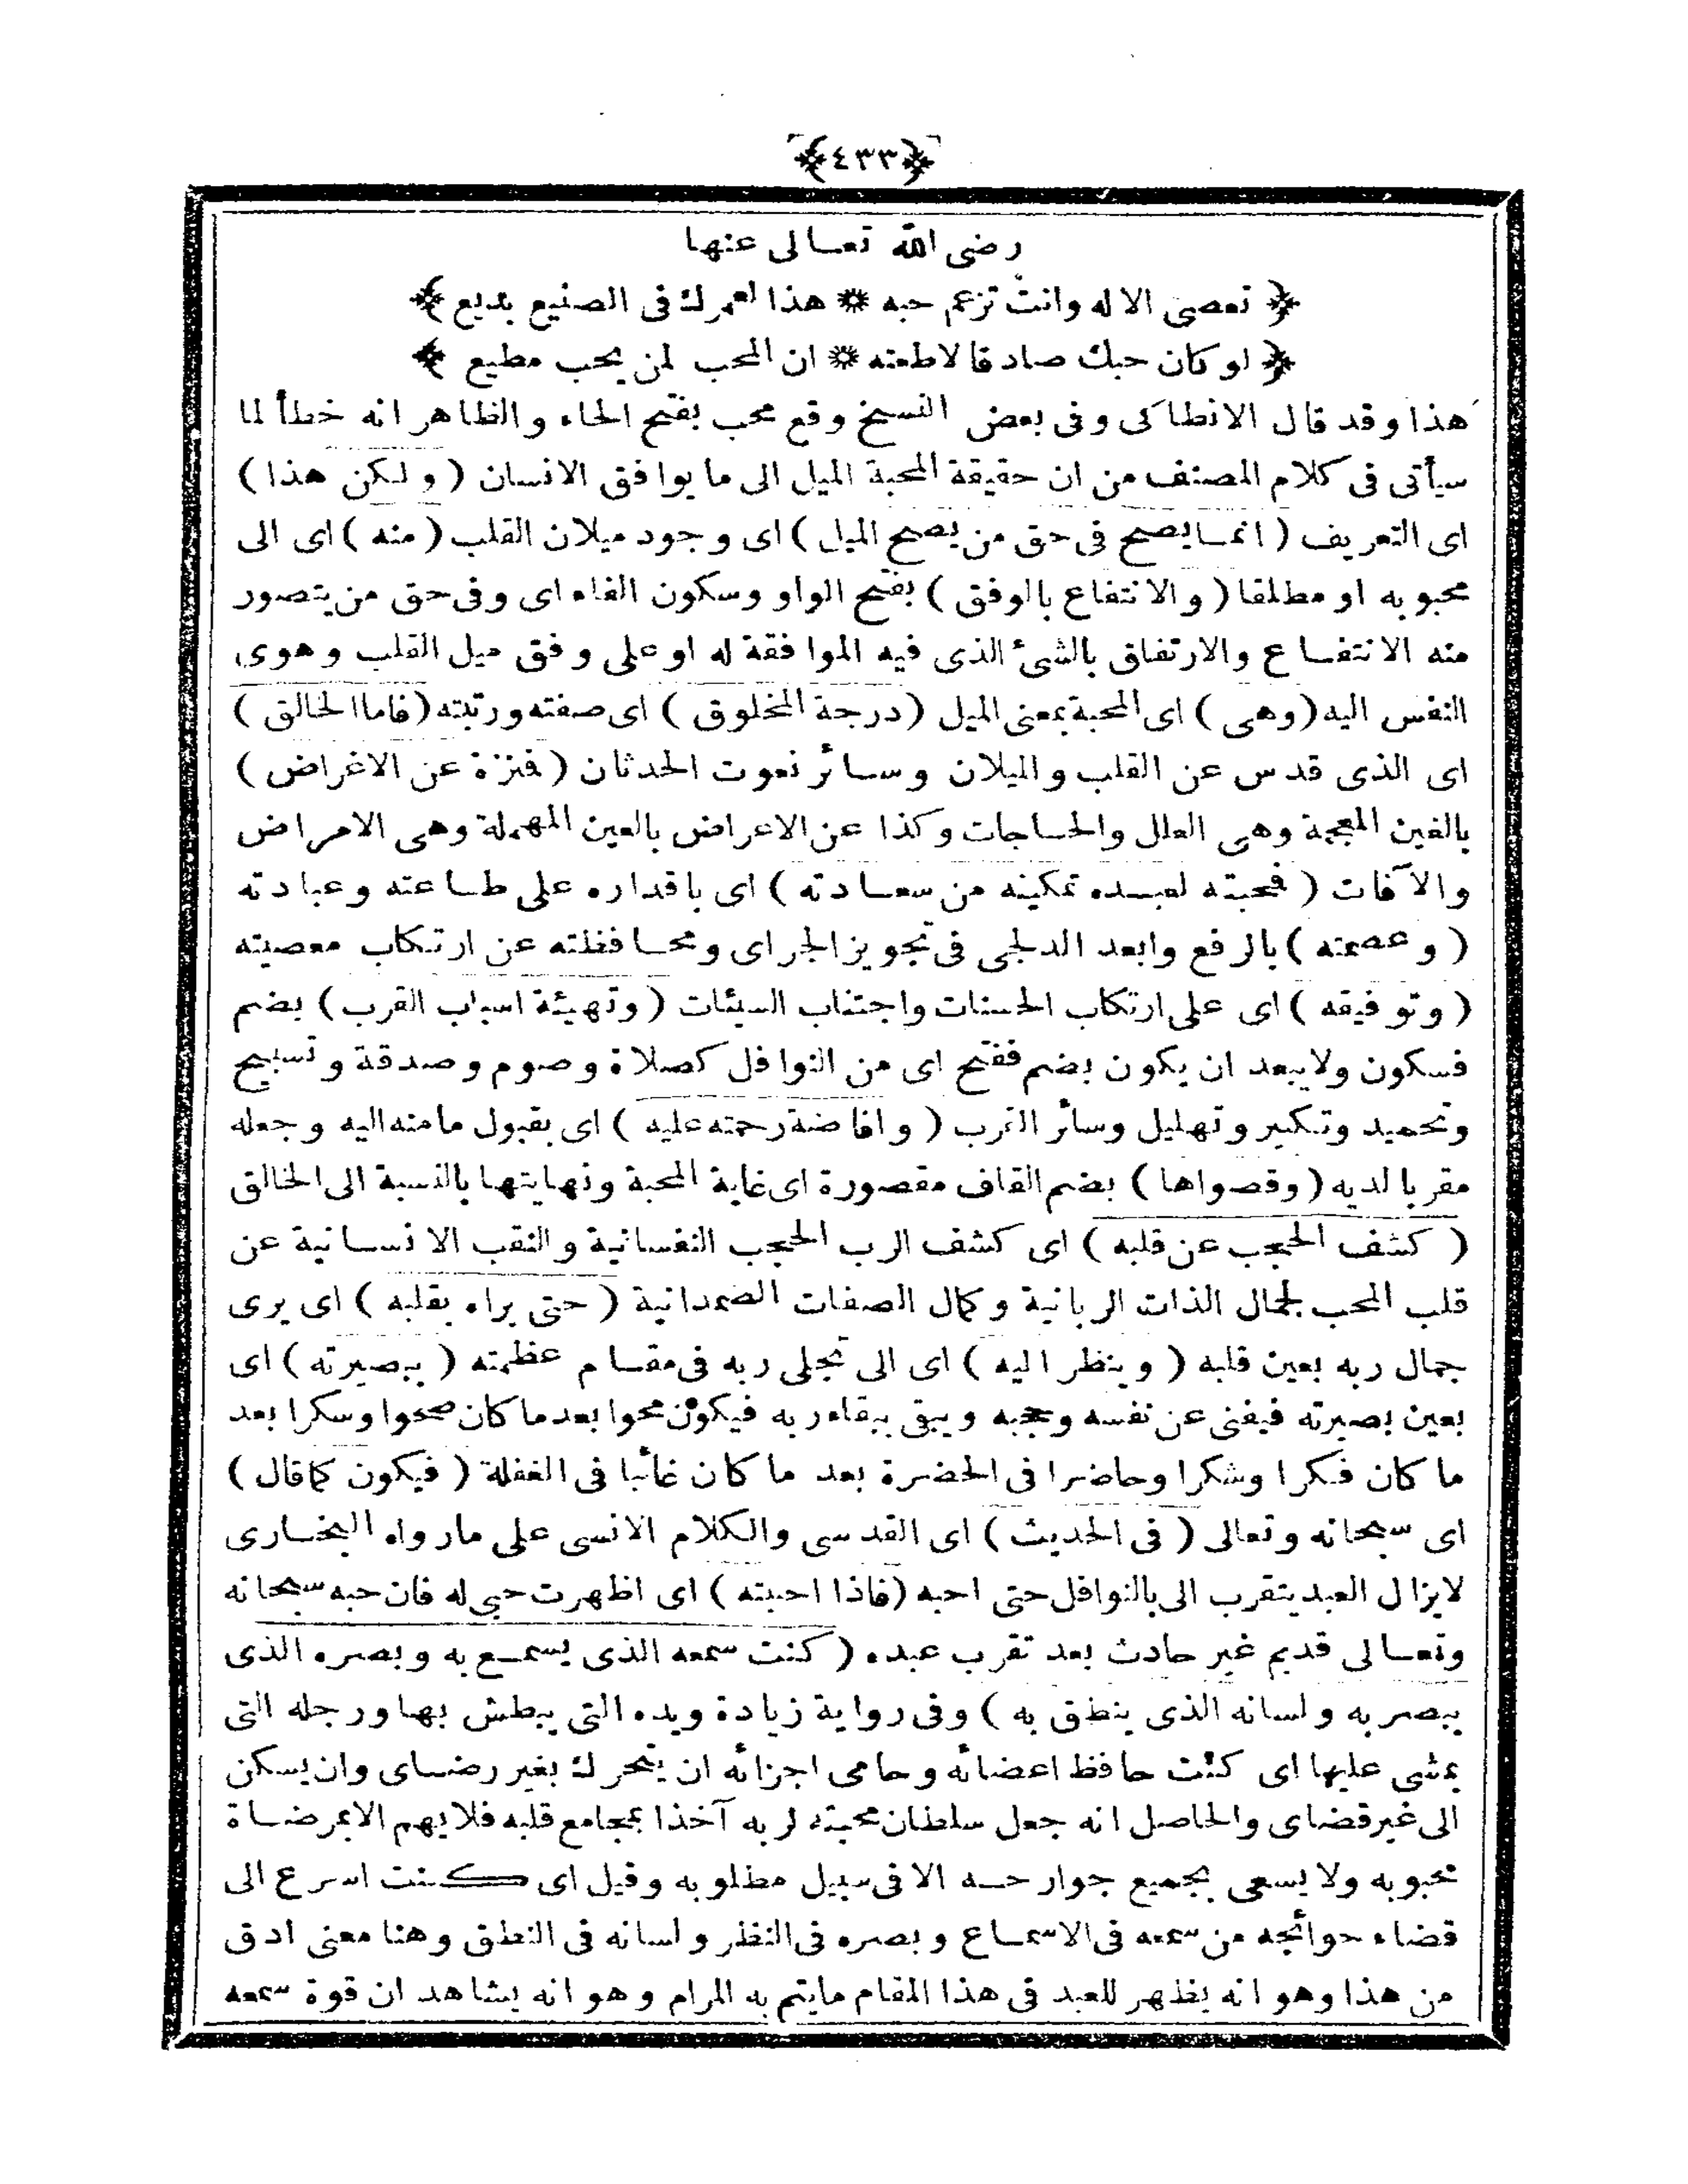 ﴿٤٣٣﴾
رضى الله تعالى عنها
﴿ تعصى الاله وانت تزعم حبه * هذا لعمرك فى الصنيع بديع ﴾
﴿ لو كان حبك صادقا لاطعته * ان المحب لمن يحب مطيع ﴾
هذا وقد قال الانطاكى وفى بعض النسخ وقع محب بفتح الحاء والظاهر انه خطأ لما
سيأتى فى كلام المصنف من ان حقيقة المحبة الميل الى ما يوافق الانسان ( ولكن هذا )
اى التعريف ( انما يصح فى حق من يصح الميل ) اى وجود ميلان القلب ( منه ) اى الى
محبوبه او مطلقا ( والانتفاع بالوفق ) بفتح الواو وسكون الفاء اى وفى حق من يتصور
منه الانتفاع والارتفاق بالشئ الذى فيه الموافقة له او على وفق ميل القلب وهوى
النفس اليه ( وهى ) اى المحبة بمعنى الميل ( درجة المخلوق ) اى صفته ورتبته ( فاما الخالق )
اى الذى قدس عن القلب والميلان وسائر نعوت الحدثان ( فمنزة عن الاغراض )
بالغين المعجمة وهى العلل والحاجات وكذا عن الاعراض بالعين المهملة وهى الامراض
والآفات ( فمحبته لعبده تمكينه من سعادته ) اى باقداره على طاعته وعبادته
( وعصمته ) بالرفع وابعد الدلجى فى تجويز الجر اى ومحافظته عن ارتكاب معصيته
( وتوفيقه ) اى على ارتكاب الحسنات واجتناب السيئات ( وتهيئة اسباب القرب ) بضم
فسكون ولايبعد ان يكون بضم ففتح اى من النوافل كصلاة وصوم وصدقة وتسبيح
وتحميد وتكبير وتهليل وسائر القرب ( وافاضة رحمته عليه ) اى بقبول مامنه اليه وجعله
مقربا لديه ( وقصواها ) بضم القاف مقصورة اى غاية المحبة ونهايتها بالنسبة الى الخالق
( كشف الحجب عن قلبه ) اى كشف الرب الحجب النفسانية والنقب الانسانية عن
قلب المحب لجمال الذات الربانية وكمال الصفات الصمدانية ( حتى يراه بقلبه ) اى يرى
جمال ربه بعين قلبه ( وينظر اليه ) اى الى تجلى ربه فى مقام عظمته ( ببصيرته ) اى
بعين بصيرته فيفنى عن نفسه وحجبه ويبقى ببقاء ربه فيكون محوا بعد ما كان صحوا وسكرا بعد
ما كان فكرا وشكرا وحاضرا فى الحضرة بعد ما كان غائبا فى الغفلة ( فيكون كما قال )
اى سبحانه وتعالى ( فى الحديث ) اى القدسى والكلام الانسى على مارواه البخارى
لايزال العبد يتقرب الى بالنوافل حتى احبه ( فاذا احببته ) اى اظهرت حبى له فان حبه سبحانه
وتعالى قديم غير حادث بعد تقرب عبده ( كنت سمعه الذى يسمع به وبصره الذى
يبصر به ولسانه الذى ينطق به ) وفى رواية زيادة ويده التى يبطش بها ورجله التى
يمشى عليها اى كنت حافظ اعضائه وحامى اجزائه ان يتحرك بغير رضاى وان يسكن
الى غير قضاى والحاصل انه جعل سلطان محبته لربه آخذا بمجامع قلبه فلايهم الا بمرضاة
محبوبه ولا يسعى بجميع جوارحه الا فى سبيل مطلوبه وقيل اى كنت اسرع الى
قضاء حوائجه من سمعه فى الاسماع وبصره فى النظر ولسانه فى النطق وهنا معنى ادق
من هذا وهو انه يظهر للعبد فى هذا المقام مايتم به المرام وهو انه يشاهد ان قوة سمعه